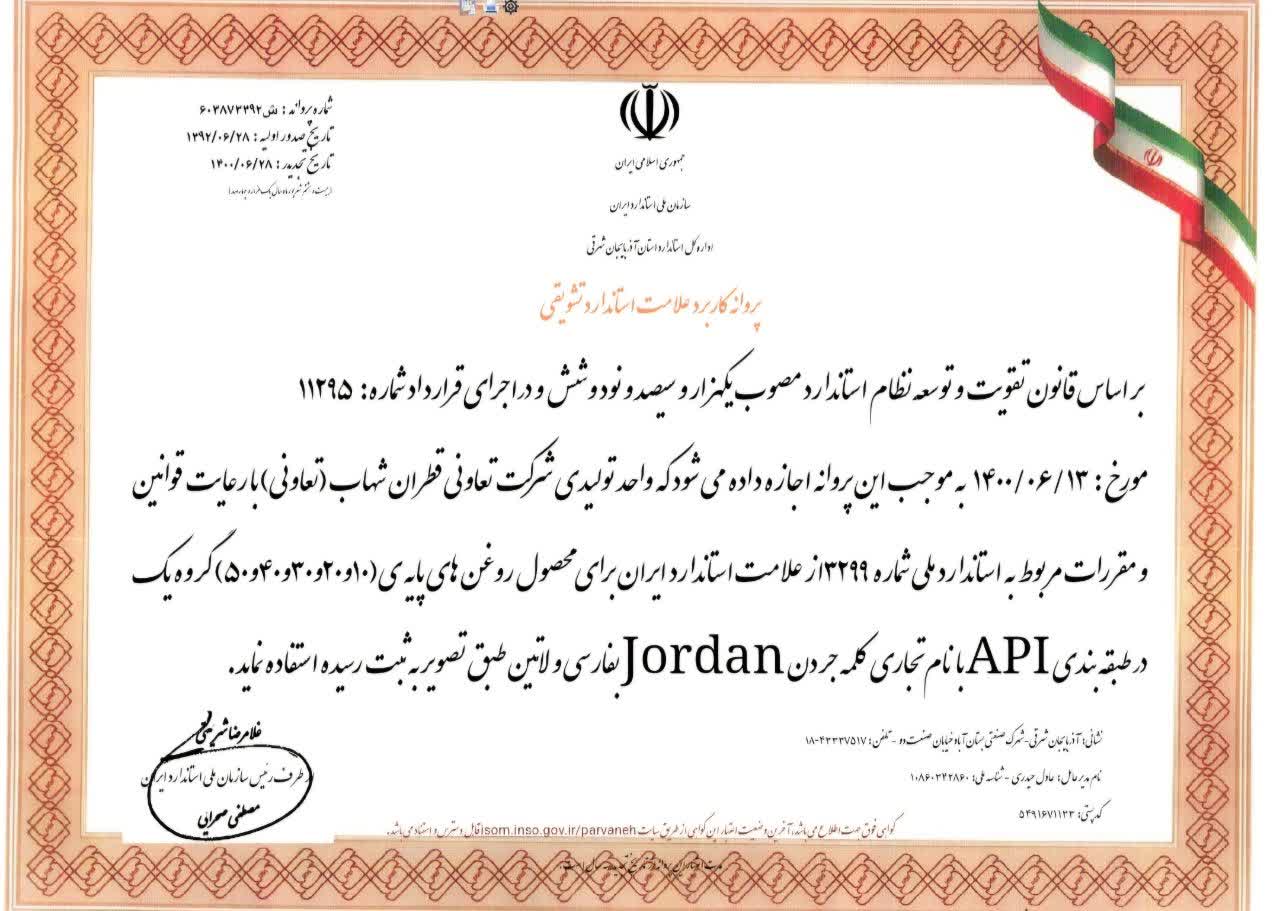 شماره پروانه : ش۶۰۳۸۷۳۳۹۲
تاریخ صدور اولیه : ۱۳۹۲/۰۶/۲۸
تاریخ تجدید : ۱۴۰۰/۰۶/۲۸
(بیست و هشتم شهریور ماه سال یک هزار و چهارصد)
جمهوری اسلامی ایران
سازمان ملی استاندارد ایران
اداره کل استاندارد استان آذربایجان شرقی
پروانه کاربرد علامت استاندارد تشویقی
بر اساس قانون تقویت و توسعه نظام استاندارد مصوب یکهزار و سیصد و نود و شش و در اجرای قرارداد شماره : ۱۱۲۹۵
مورخ : ۱۴۰۰/۰۶/۱۳ به موجب این پروانه اجازه داده می شود که واحد تولیدی شرکت تعاونی قطران شهاب (تعاونی) با رعایت قوانین
و مقررات مربوط به استاندارد ملی شماره ۳۲۹۹ از علامت استاندارد ایران برای محصول روغن های پایه ی (۱۰و۲۰و۳۰و۴۰و۵۰) گروه یک
در طبقه بندی API با نام تجاری کلمه جردن Jordan بفارسی و لاتین طبق تصویر به ثبت رسیده استفاده نماید.
غلامرضا شریفی
از طرف رئیس سازمان ملی استاندارد ایران
مصطفی صحرایی
نشانی: آذربایجان شرقی-شهرک صنعتی بستان آباد خیابان صنعت دو - تلفن: ۴۳۳۳۷۵۱۷-۱۸
نام مدیر عامل: عادل حیدری - شناسه ملی: ۱۰۸۶۰۳۴۲۸۶۰
کد پستی: ۵۴۹۱۶۷۱۱۳۳
گواهی فوق جهت اطلاع می باشد، آخرین وضعیت اعتبار این گواهی از طریق سایت isom.inso.gov.ir/parvaneh قابل دسترس و استناد می باشد.
مدت اعتبار این پروانه از تاریخ تجدید سال است.